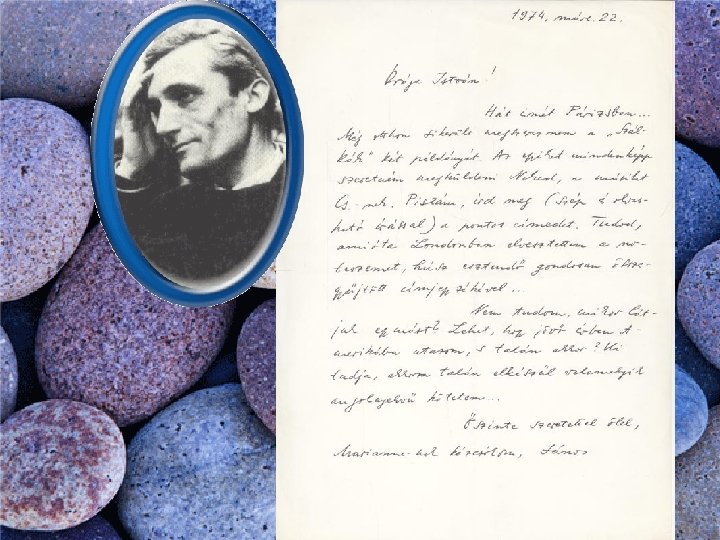 1974. márc. 22.
Drága István!
Hát ismét Párizsban...
Még otthon sikerült megszereznem a „Szál-
kák" két példányát. Az egyiket mindenképp
szeretném megküldeni Neked, a másikat
Cs.-nek. Pistám, írd meg (szép és olvas-
ható írással) a pontos címedet. Tudod,
amióta Londonban elvesztettem a no-
teszemet, húsz esztendő gondosan össze-
gyüjtött címjegyzékével...
Nem tudom, mikor lát-
juk egymást? Lehet, hogy jövő évben A-
merikába utazom, s talán akkor? Ki
tudja, akkorra talán elkészül valamelyik
angolnyelvű kötetem...
Őszinte szeretettel ölel,
Marianne-nak kézcsókom, János